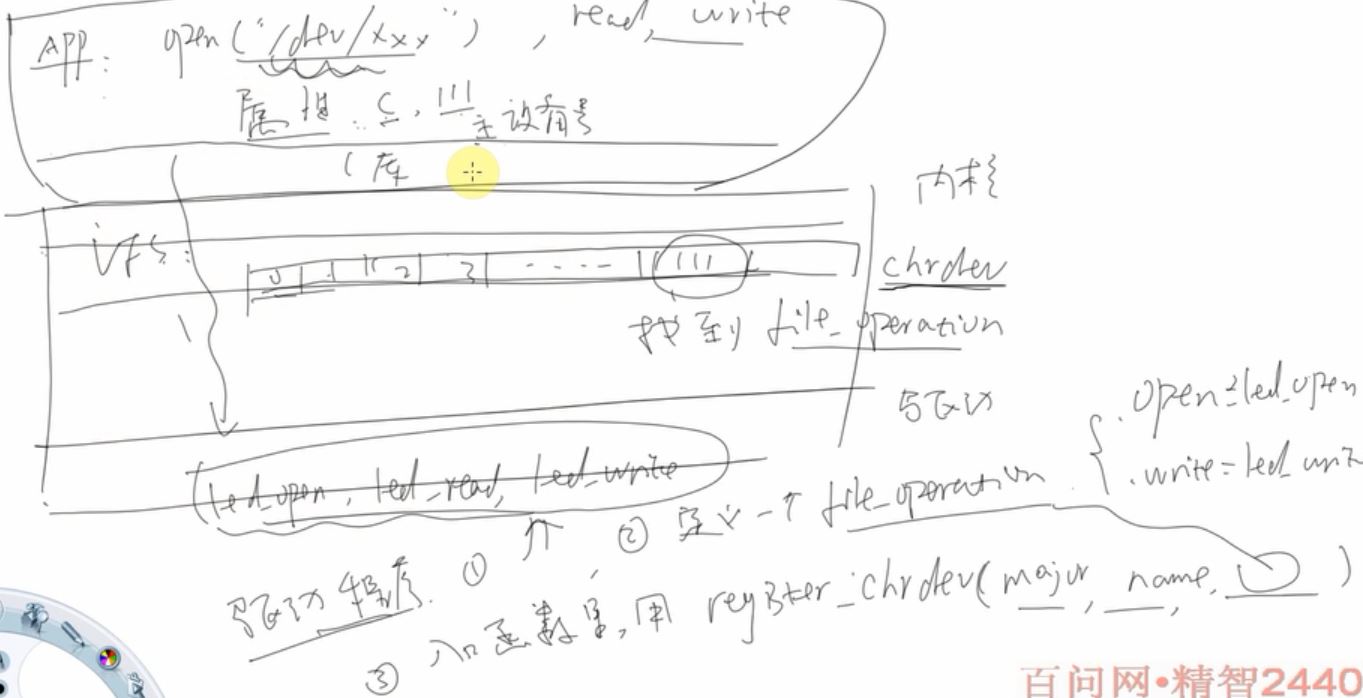 APP: open("/dev/xxx"), read, write
属性: c, 111 主设备号
C库
内核
VFS:
0 1 2 3 ······ 111
chrdev
找到 file_operation
驱动
.open=led_open
.write=led_writ
led_open, led_read, led_write
驱动程序. ① ② 定义一个 file_operation
③ 入口函数里,用 register_chrdev(major, name, )
百问网•精智2440